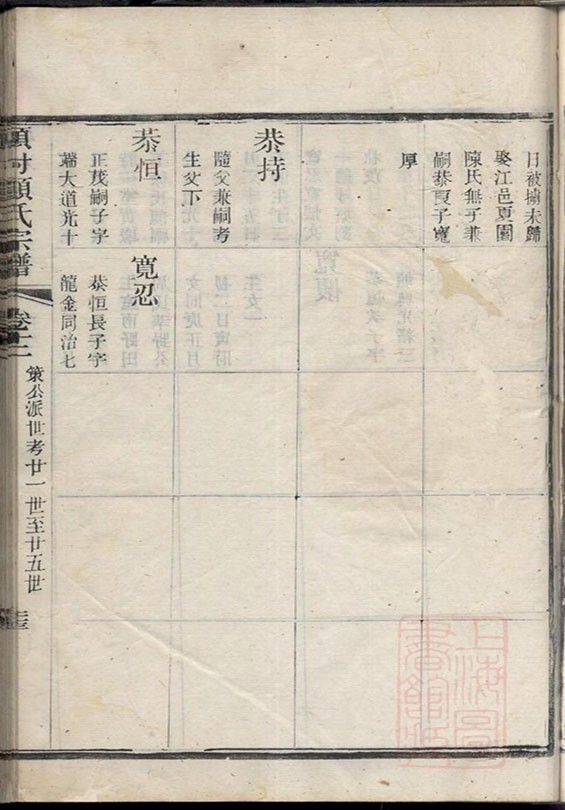 日被擄未歸
娶江邑夏園
陳氏無子兼
嗣恭良子寬
厚
恭持
隨父兼嗣考
生父下
恭恒
正茂嗣子字
端大道光十
寬忍
恭恒長子字
龍金同治七
項氏宗譜
卷十二
策公派世考廿一世至廿五世
上海圖
書館藏